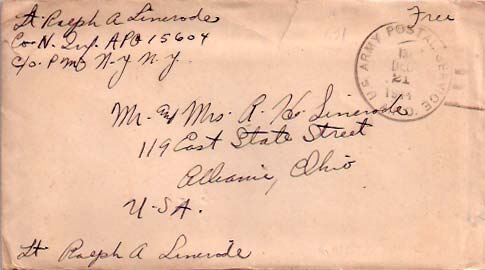 Lt Ralph A Linerode
Co. N. Inf. APO 15604
C/O. P M N-Y N.Y.
Free
U.S. ARMY POSTAL SERVICE
DEC
21
A.P.O.
Mr. and Mrs. R. H. Linerode
119 East State Street
Alliance, Ohio
U-SA.
Lt Ralph A Linerode